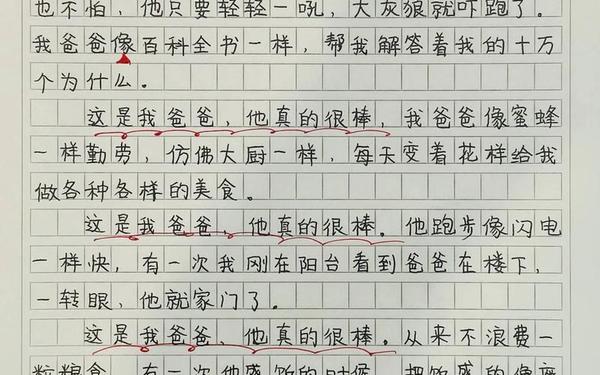 也不怕，他只要轻轻一吼，大灰狼就吓跑了。
我爸爸像百科全书一样，帮我解答着我的十万
个为什么。
这是我爸爸，他真的很棒，我爸爸像蜜蜂
一样勤劳，仿佛大厨一样，每天变着花样给我
做各种各样的美食。
这是我爸爸，他真的很棒。他跑步像闪电
一样快，有一次我刚在阳台看到爸爸在楼下，
一转眼，他就家门了。
这是我爸爸，他真的很棒。从来不浪费一
粒粮食，有一次他盛饭的时候，把饭盛的像座